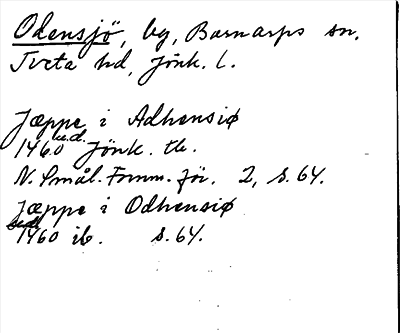 Odensjö, by, Barnarps sn,
Tveta hd, Jönk. l.
Jæppe i Adhensiø
1460 u.d. Jönk. tb.
N. Smål. Fornm. för. 2, s. 64.
Jæppe i Odhensiø
1460 ib. s. 64.